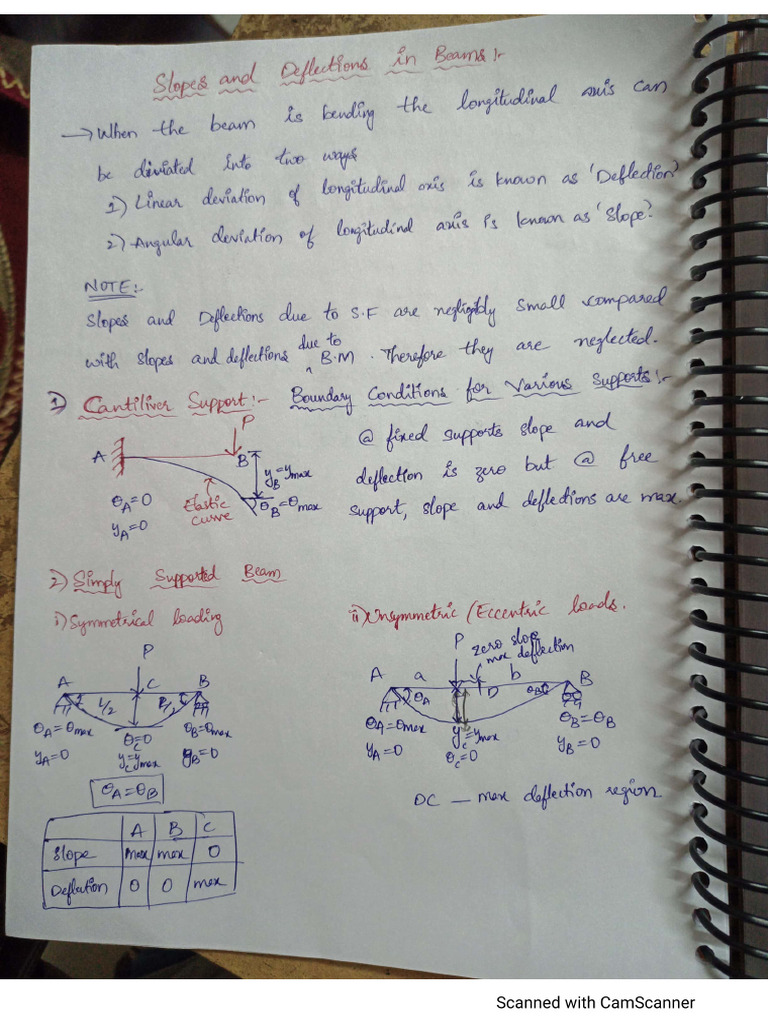 Slopes and Deflections in Beams:-
→ When the beam is bending the longitudinal axis can
be diviated into two ways
1) Linear deviation of longitudinal axis is known as 'Deflection'
2) Angular deviation of longitudinal axis is known as 'Slope'.
NOTE:-
Slopes and Deflections due to S.F are negligibly small compared
with slopes and deflections due to B.M. Therefore they are neglected.
1) Cantiliver Support:- Boundary Conditions for Various Supports:-
P
A
B
y_B=y_max
θ_A=0
y_A=0
Elastic
curve
θ_B=θ_max
@ fixed supports slope and
deflection is zero but @ free
support, slope and deflections are max.
2) Simply Supported Beam
i) Symmetrical loading
P
A C B
L/2 L/2
θ_A=θ_max θ_C=0 θ_B=θ_max
y_A=0 y_C=y_max y_B=0
θ_A=θ_B
A B C
Slope max max 0
Deflection 0 0 max
ii) Unsymmetric (Eccentric loads.
P zero slope
max deflection
A a b B
θ_A D θ_B
θ_A=θ_max y_C=y_max θ_B=θ_B
y_A=0 θ_C=0 y_B=0
DC — max deflection region
Scanned with CamScanner